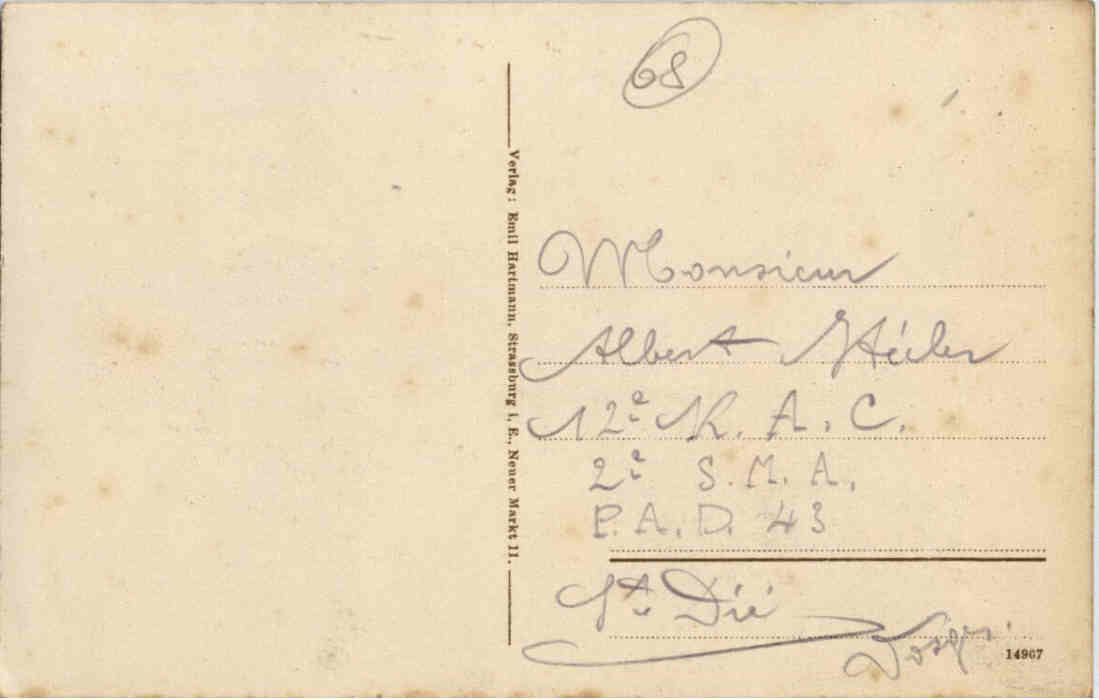 68
Verlag: Emil Hartmann, Strassburg i. E., Neuer Markt 11.
Monsieur
Albert
12e R. A. C.
2e S. M. A.
P. A. D. 43
St Dié
Vosges
14967